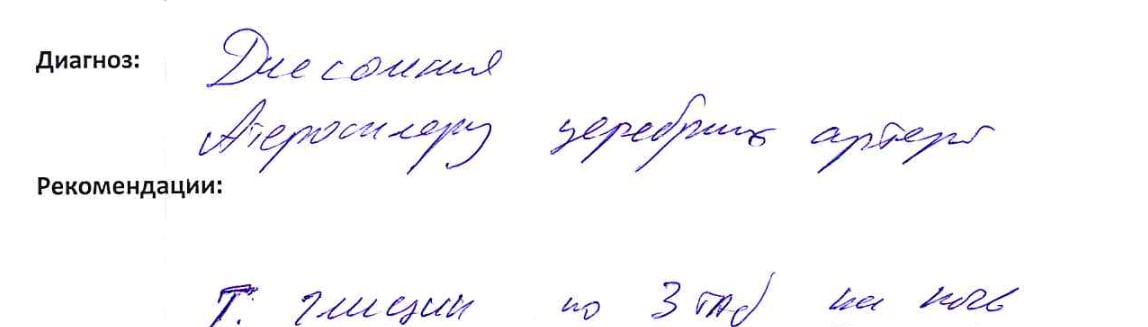 Диагноз: Диссомния
Атеросклероз церебрных артерий
Рекомендации:
Т. глицин по 3 таб на ночь